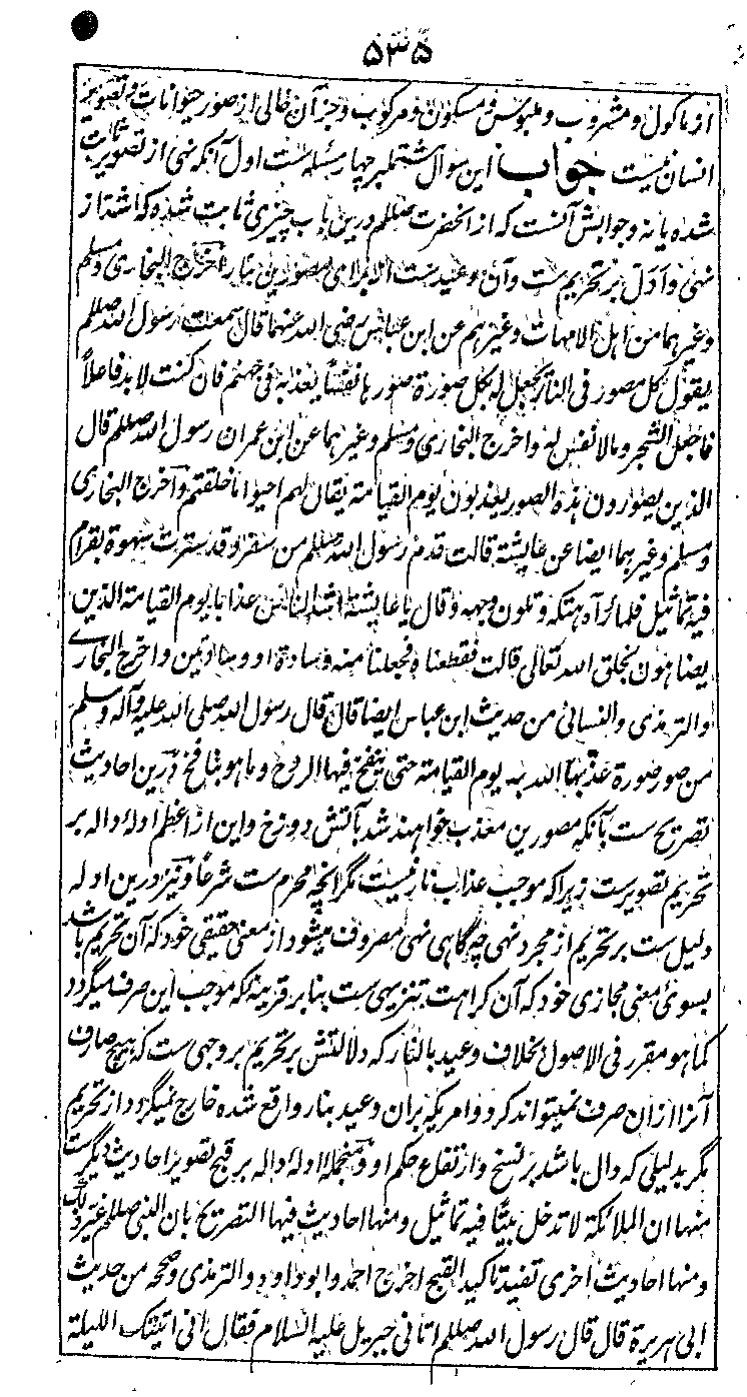 ۵۳۵
از ماکول و مشروب و ملبوس و مسکون و مرکوب و جز آن خالی از صور حیوانات و تصویر
انسان نیست جواب این سوال مشتملبر چهار مسئله‌ست اول آنکه نهی از تصویر ثابت
شده یا نه و جوابش آنست که از آنحضرت صلعلم درین باب چیزی ثابت شده که اشد از
نهی و ادل بر تحریم ست و آن وعیدست برای مصورین بنار اخرج البخاری و مسلم
و غیرهما من اهل الامهات و غیرهم عن ابن عباس رضی الله عنهما قال سمعت رسول الله صللم
یقول کل مصور فی النار یجعل له بکل صورة صورها نفسا یعذبه فی جهنم فان کنت لابد فاعلاً
فاجعل الشجر و مالا نفس له و اخرج البخاری و مسلم و غیرهما عن ابن عمر ان رسول الله صللم قال
الذین یصورون هذه الصور یعذبون یوم القیامة یقال لهم احیوا ما خلقتم و اخرج البخاری
و مسلم و غیرهما ایضا عن عایشة قالت قدم رسول الله صللم من سفر و قد سترت سهوة بقرام
فیه تماثیل فلما رآه هتکه و تلون وجهه و قال یا عایشة اشد الناس عذابا یوم القیامة الذین
یضاهون بخلق الله تعالی قالت فقطعناه فجعلنا منه وسادة او وسادتین و اخرج البخاری
و الترمذی و النسائی من حدیث ابن عباس ایضا قال قال رسول الله صلی الله علیه و آله و سلم
من صور صورة عذبه الله بها یوم القیامة حتی ینفخ فیها الروح و ما هو بنافخ و درین احادیث
تصریح ست بآنکه مصورین معذب خواهند شد بآتش دوزخ و این از اعظم ادلهٔ داله بر
تحریم تصویرست زیرا که موجب عذاب نار نیست مگر آنچه محرم ست شرعاً و نیز درین ادله
دلیل ست بر تحریم از مجرد نهی چه گاهی نهی مصروف میشود از معنی حقیقی خود که آن تحریم باشد
بسوی معنی مجازی خود که آن کراهت تنزیهی ست بنابر قرینهٔ که موجب این صرف میگردد
کما هو مقرر فی الاصول بخلاف وعید بالنار که دلالتش بر تحریم بر وجهی ست که هیچ صارف
آنرا ازان صرف نمیتواند کرد و امریکه بران وعید بنار واقع شده خارج نمیگردد از تحریم
مگر بدلیلی که دال باشد بر نسخ و ارتفاع حکم او و منجملهٔ ادلهٔ داله بر قبح تصویر احادیث دیگرست
منها ان الملائکة لا تدخل بیتًا فیه تماثیل و منها احادیث فیها التصریح بان النبی صللم غیر ذلک
و منها احادیث اخری تفید تاکید القبح اخرج احمد و ابوداود و الترمذی و صححه من حدیث
ابی هریرة قال قال رسول الله صللم اتانی جبریل علیه السلام فقال انی اتیتک اللیلة